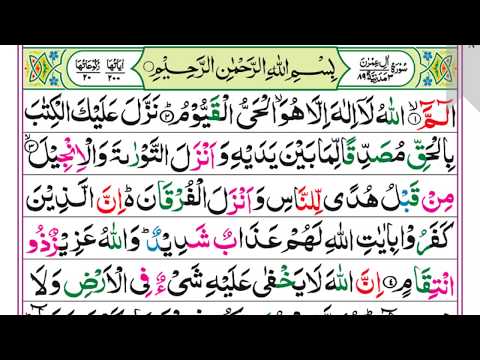 سُوْرَةُ اٰلِ عِمْرٰنَ
مَدَنِيَّةٌ ٨٩
بِسْمِ اللهِ الرَّحْمٰنِ الرَّحِيْمِ
اٰيَاتُهَا ٢٠٠
رُكُوْعَاتُهَا ٢٠
الٓمّٓ ۙ﴿۱﴾ اللهُ لَاۤ اِلٰهَ اِلَّا هُوَۙ الْحَيُّ الْقَيُّوْمُ ؕ﴿۲﴾ نَزَّلَ عَلَيْكَ الْكِتٰبَ
بِالْحَقِّ مُصَدِّقًا لِّمَا بَيْنَ يَدَيْهِ وَاَنْزَلَ التَّوْرٰىةَ وَالْاِنْجِيْلَ ۙ﴿۳﴾
مِنْ قَبْلُ هُدًى لِّلنَّاسِ وَاَنْزَلَ الْفُرْقَانَ ؕ۬ اِنَّ الَّذِيْنَ
كَفَرُوْا بِاٰيٰتِ اللهِ لَهُمْ عَذَابٌ شَدِيْدٌ ؕ وَاللهُ عَزِيْزٌ ذُو
انْتِقَامٍ ﴿۴﴾ اِنَّ اللهَ لَا يَخْفٰى عَلَيْهِ شَيْءٌ فِى الْاَرْضِ وَلَا